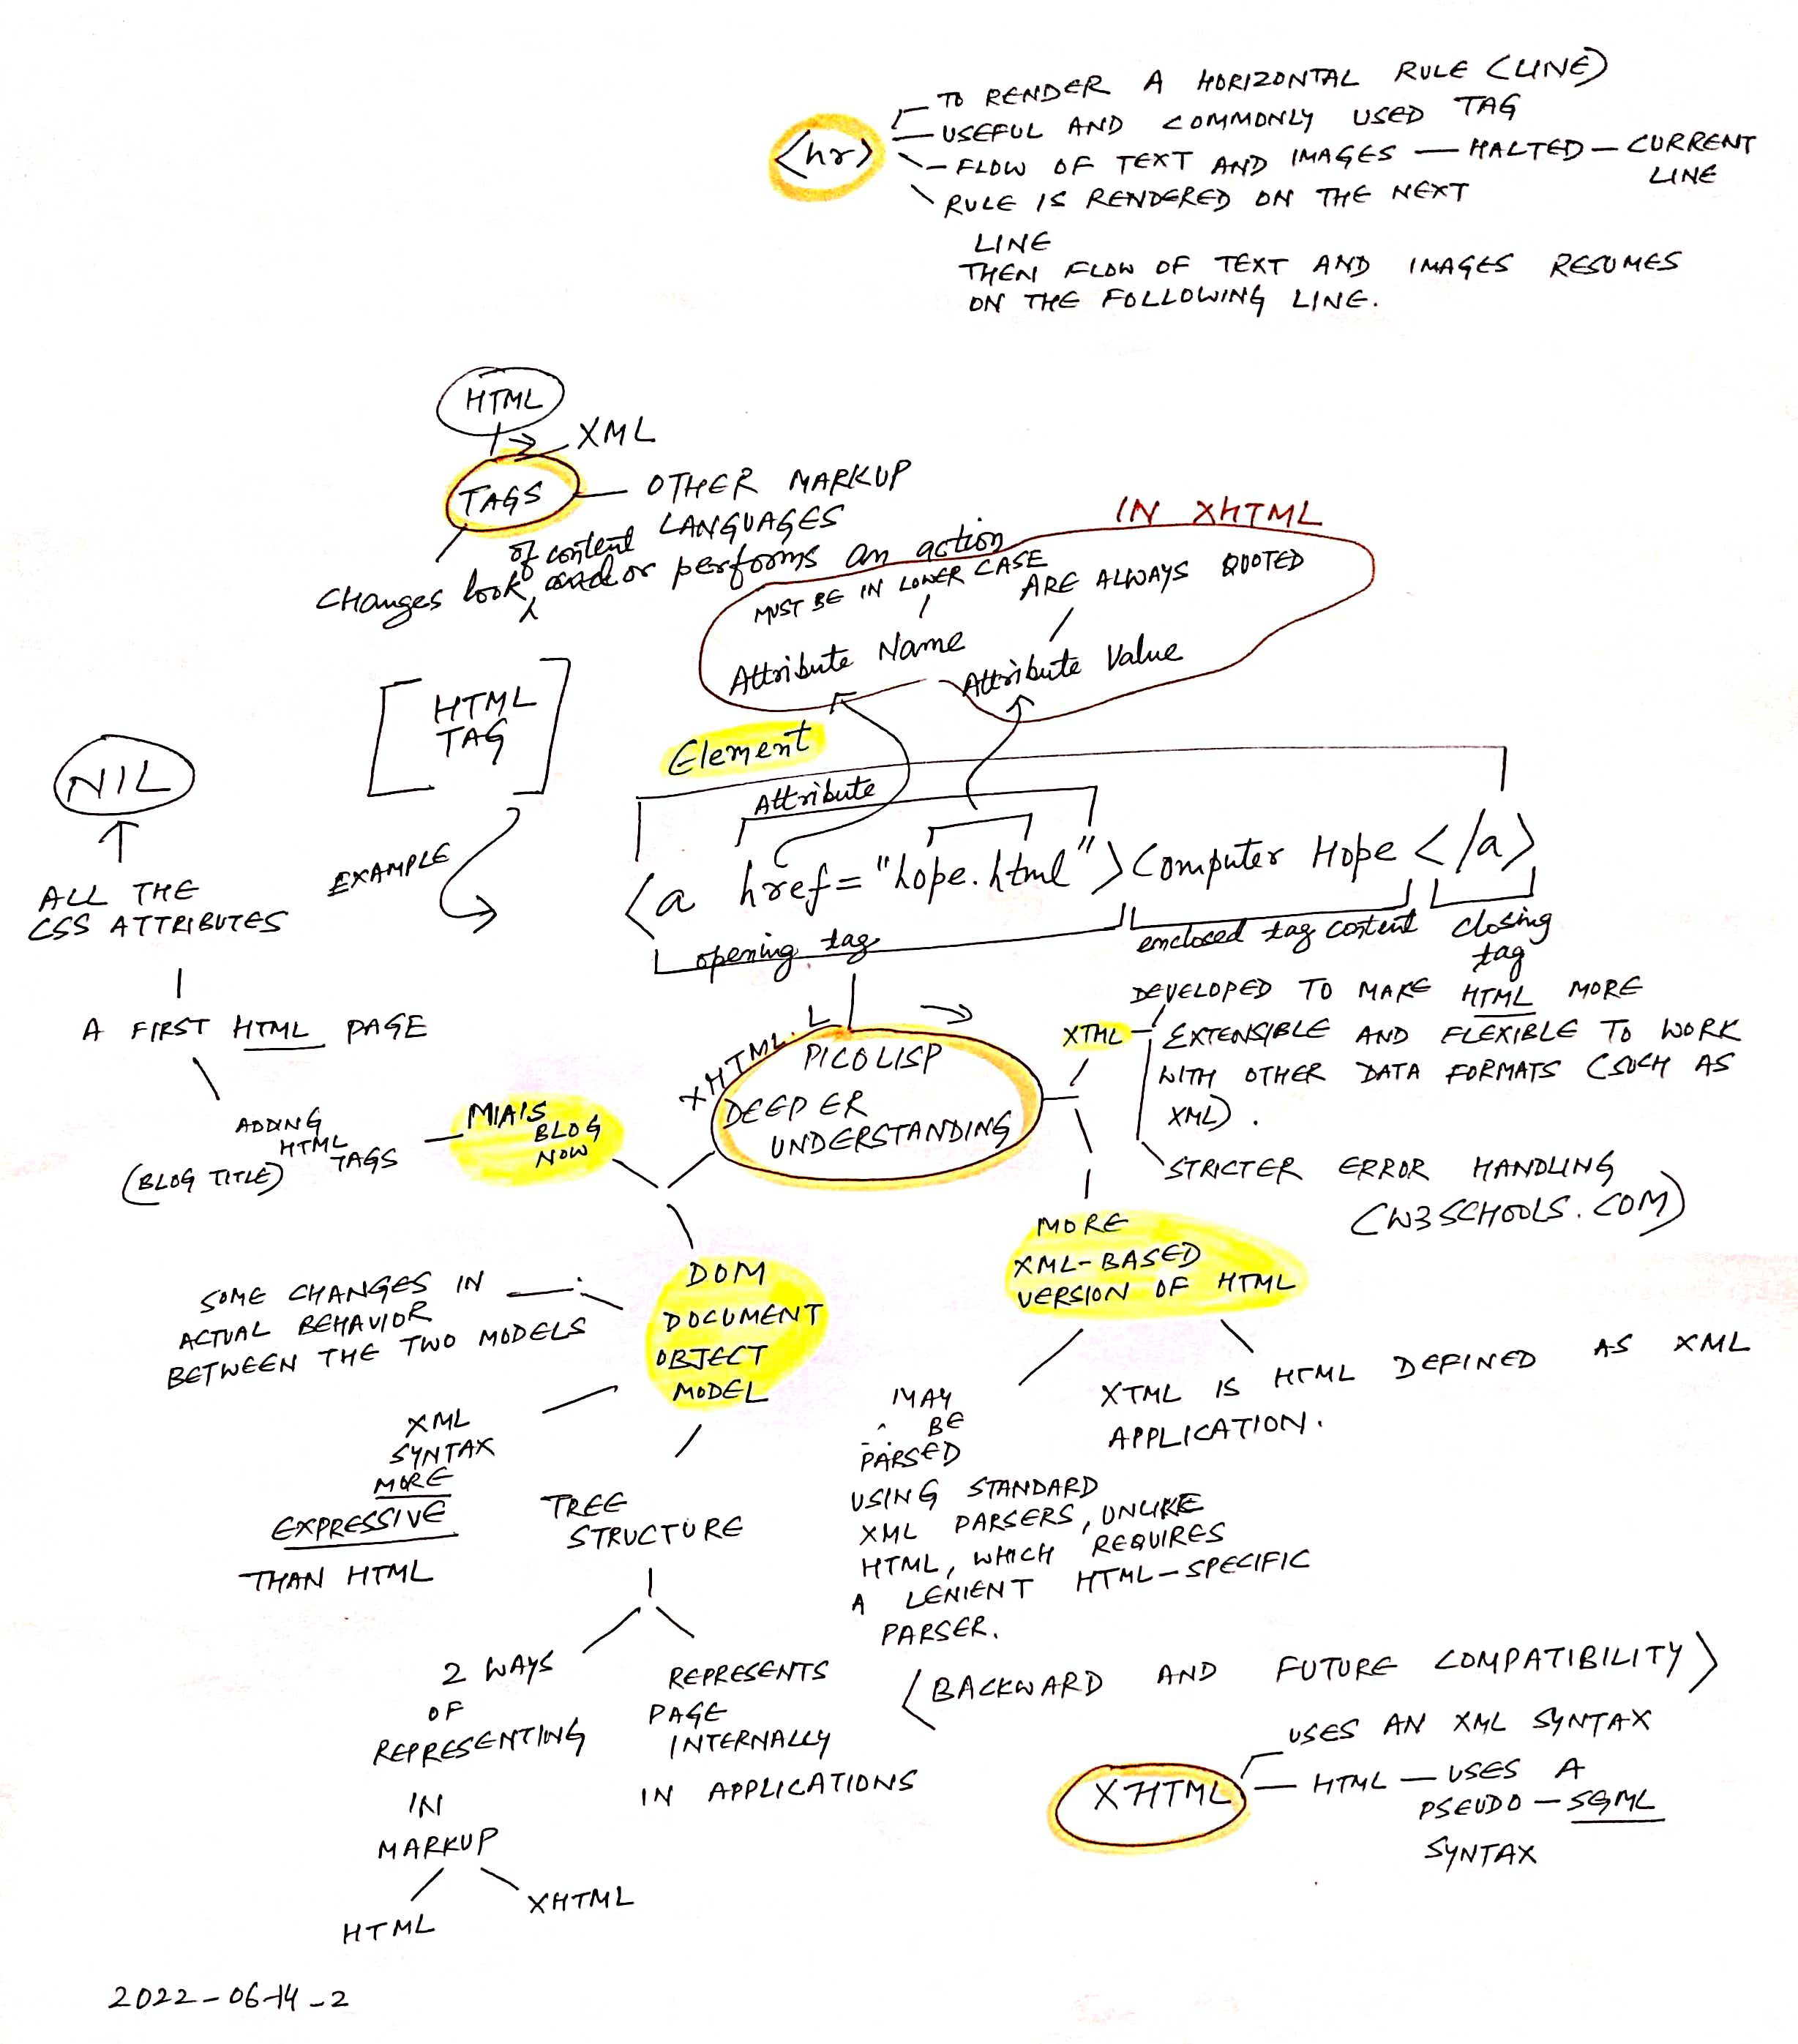 <hr>
TO RENDER A HORIZONTAL RULE (LINE)
USEFUL AND COMMONLY USED TAG
FLOW OF TEXT AND IMAGES — HALTED — CURRENT
LINE
RULE IS RENDERED ON THE NEXT
LINE
THEN FLOW OF TEXT AND IMAGES RESUMES
ON THE FOLLOWING LINE.
HTML
XML
TAGS — OTHER MARKUP
LANGUAGES
of content
Changes look and or performs an action
IN XHTML
MUST BE IN LOWER CASE
ARE ALWAYS QUOTED
Attribute Name
Attribute Value
[HTML
TAG]
EXAMPLE
Element
Attribute
<a href="hope.html">Computer Hope</a>
opening tag
enclosed tag content
closing
tag
NIL
ALL THE
CSS ATTRIBUTES
A FIRST HTML PAGE
ADDING
HTML
TAGS
(BLOG TITLE)
MIAIS
BLOG
NOW
XHTML.L
PICOLISP
DEEPER
UNDERSTANDING
XTML
DEVELOPED TO MAKE HTML MORE
EXTENSIBLE AND FLEXIBLE TO WORK
WITH OTHER DATA FORMATS (SUCH AS
XML).
STRICTER ERROR HANDLING
(W3SCHOOLS.COM)
MORE
XML-BASED
VERSION OF HTML
DOM
DOCUMENT
OBJECT
MODEL
SOME CHANGES IN
ACTUAL BEHAVIOR
BETWEEN THE TWO MODELS
XML
SYNTAX
MORE
EXPRESSIVE
THAN HTML
TREE
STRUCTURE
2 WAYS
OF
REPRESENTING
IN
MARKUP
HTML
XHTML
REPRESENTS
PAGE
INTERNALLY
IN APPLICATIONS
MAY
BE
PARSED
USING STANDARD
XML PARSERS, UNLIKE
HTML, WHICH REQUIRES
A LENIENT HTML-SPECIFIC
PARSER.
XTML IS HTML DEFINED AS XML
APPLICATION.
(BACKWARD AND FUTURE COMPATIBILITY)
XHTML
USES AN XML SYNTAX
HTML — USES A
PSEUDO-SGML
SYNTAX
2022-06-14-2